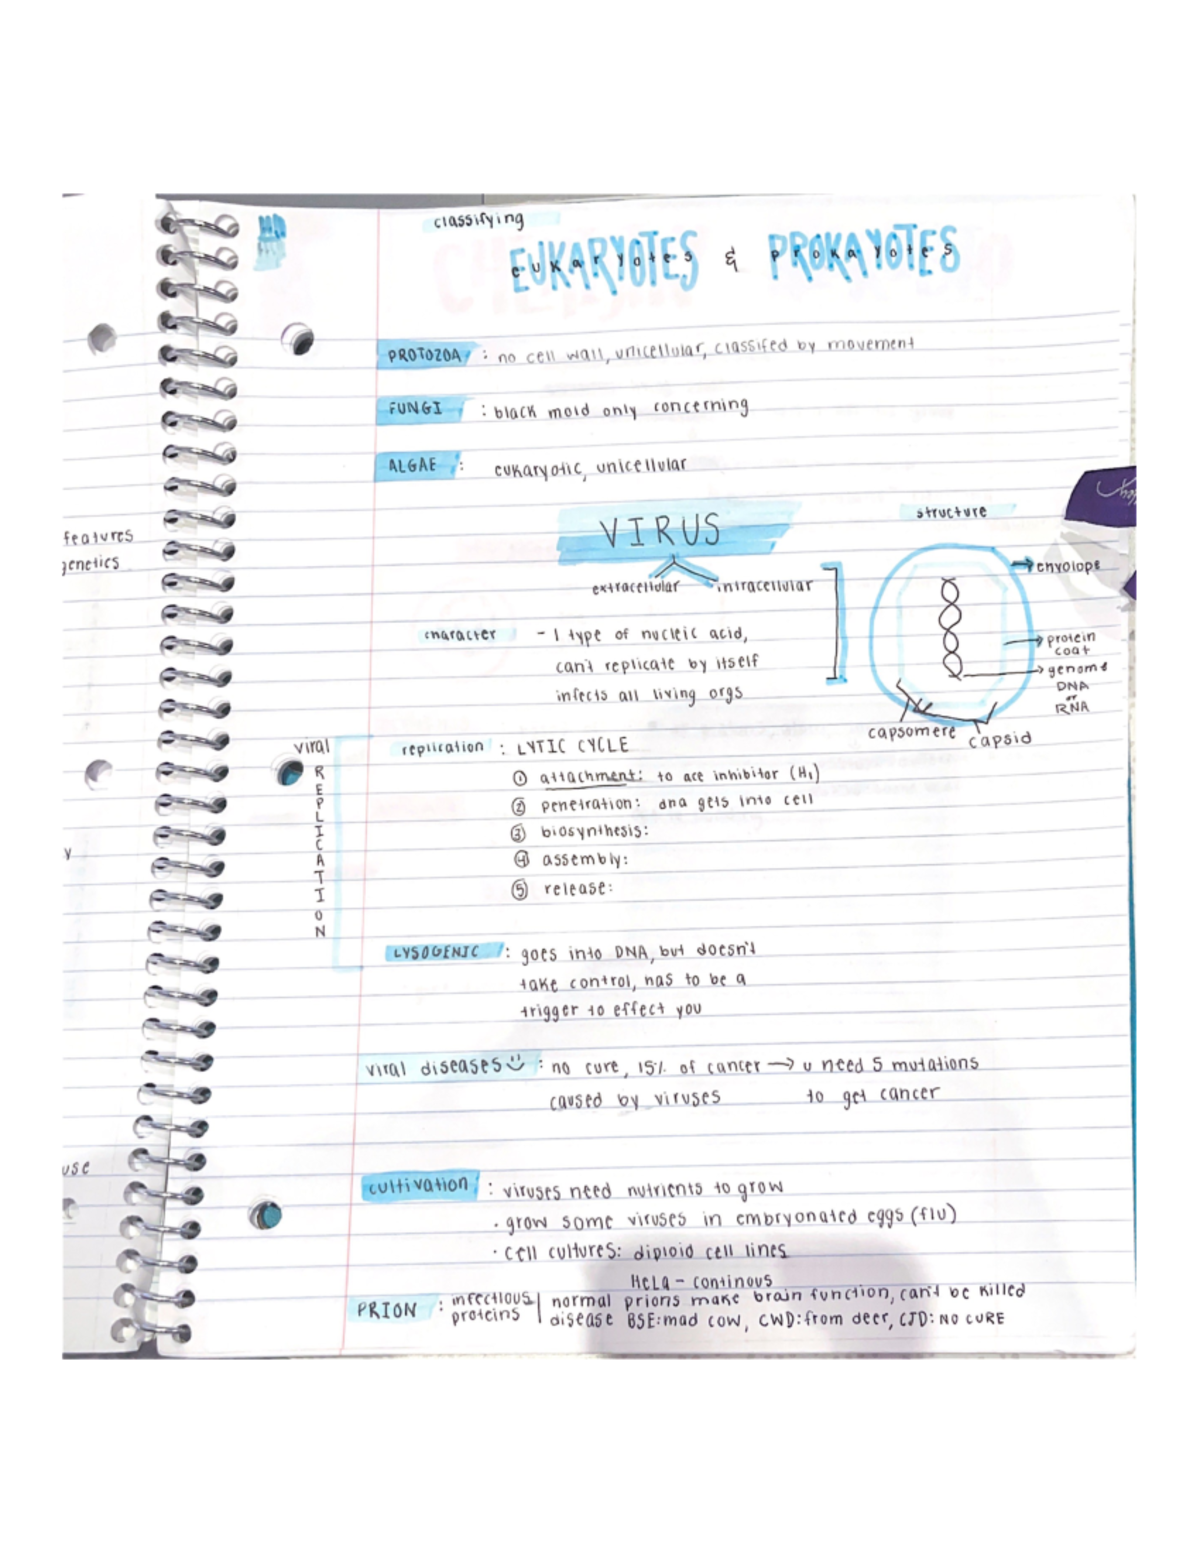 classifying
EUKARYOTES & PROKAYOTES
eukaryotes prokaryotes
PROTOZOA : no cell wall, unicellular, classifed by movement
FUNGI : black mold only concerning
ALGAE : eukaryotic, unicellular
features
genetics
VIRUS
extracellular intracellular
structure
envolope
protein
coat
genome
DNA
or
RNA
capsomere capsid
character - 1 type of nucleic acid,
can't replicate by itself
infects all living orgs
viral
REPLICATION
replication : LYTIC CYCLE
① attachment: to ace inhibitor (H₁)
② penetration: dna gets into cell
③ biosynthesis:
④ assembly:
⑤ release:
y
LYSOGENIC : goes into DNA, but doesn't
take control, has to be a
trigger to effect you
viral diseases : no cure, 15% of cancer → u need 5 mutations
caused by viruses to get cancer
use
cultivation : viruses need nutrients to grow
· grow some viruses in embryonated eggs (flu)
· cell cultures: diploid cell lines
HeLa - continous
PRION : infectious proteins | normal prions make brain function, can't be killed
disease BSE: mad cow, CWD: from deer, CJD: NO CURE